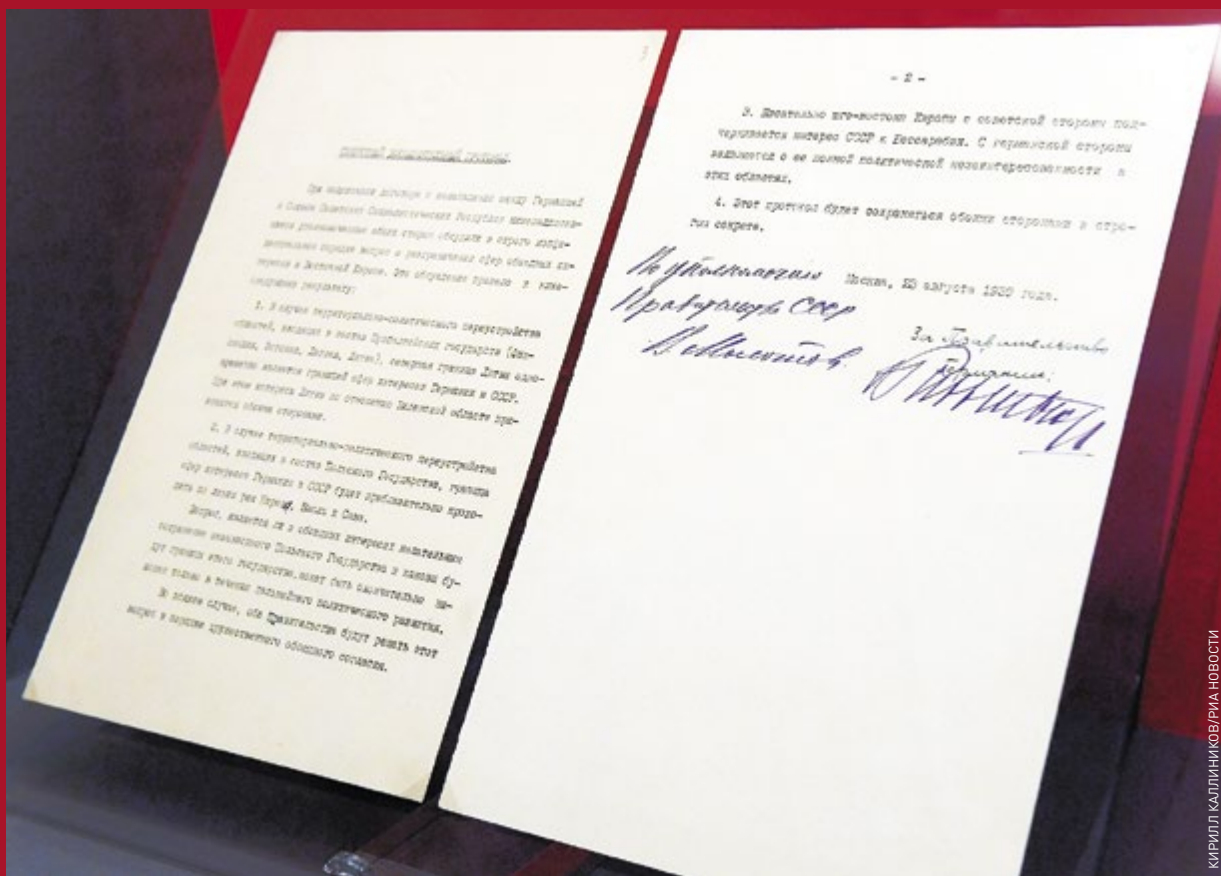 СЕКРЕТНЫЙ ДОПОЛНИТЕЛЬНЫЙ ПРОТОКОЛ.
При подписании договора о ненападении между Германией
и Союзом Советских Социалистических Республик нижеподписав-
шиеся уполномоченные обеих сторон обсудили в строго конфи-
денциальном порядке вопрос о разграничении сфер обоюдных ин-
тересов в Восточной Европе. Это обсуждение привело к ниже-
следующему результату:
1. В случае территориально-политического переустройства
областей, входящих в состав Прибалтийских государств (Фин-
ляндия, Эстония, Латвия, Литва), северная граница Литвы одно-
временно является границей сфер интересов Германии и СССР.
При этом интересы Литвы по отношению Виленской области при-
знаются обоими сторонами.
2. В случае территориально-политического переустройства
областей, входящих в состав Польского Государства, граница
сфер интересов Германии и СССР будет приблизительно прохо-
дить по линии рек Нарева, Вислы и Сана.
Вопрос, является ли в обоюдных интересах желательным
сохранение независимого Польского Государства и каковы бу-
дут границы этого государства, может быть окончательно вы-
яснен только в течение дальнейшего политического развития.
Во всяком случае, оба Правительства будут решать этот
вопрос в порядке дружественного обоюдного согласия.
- 2 -
3. Касательно юго-востока Европы с советской стороны под-
черкивается интерес СССР к Бессарабии. С германской стороны
заявляется о ее полной политической незаинтересованности в
этих областях.
4. Этот протокол будет сохраняться обоими сторонами в стро-
гом секрете.
Москва, 23 августа 1939 года.
По уполномочию
Правительства СССР
В. Молотов
За Правительство
Германии:
КИРИЛЛ КАЛЛИНИКОВ/РИА НОВОСТИ